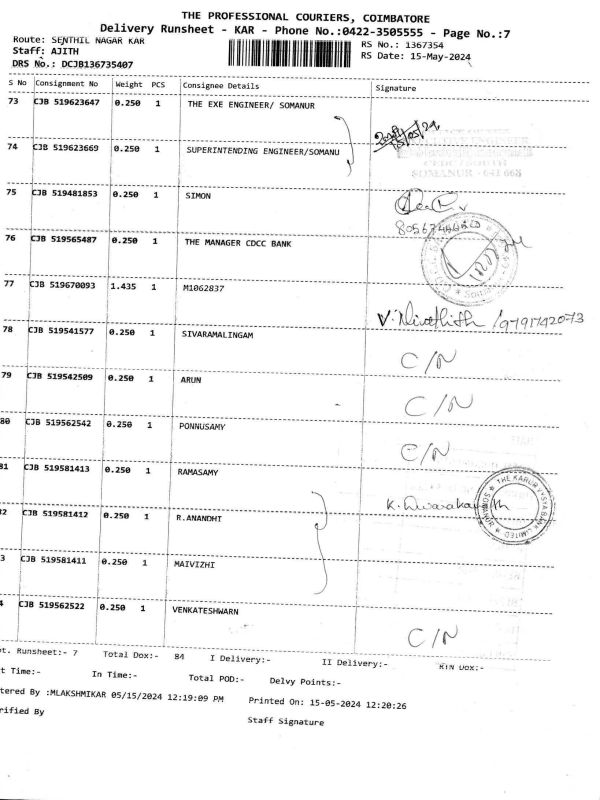 THE PROFESSIONAL COURIERS, COIMBATORE
Delivery Runsheet - KAR - Phone No.:0422-3505555 - Page No.:7
Route: SENTHIL NAGAR KAR
RS No.: 1367354
Staff: AJITH
RS Date: 15-May-2024
DRS No.: DCJB136735407
S No Consignment No Weight PCS Consignee Details Signature
73 CJB 519623647 0.250 1 THE EXE ENGINEER/ SOMANUR
15/05/24
74 CJB 519623669 0.250 1 SUPERINTENDING ENGINEER/SOMANU
SOMANUR - 641 668
75 CJB 519481853 0.250 1 SIMON
76 CJB 519565487 0.250 1 THE MANAGER CDCC BANK
77 CJB 519670093 1.435 1 M1062837
V. Nivethith /9791742073
78 CJB 519541577 0.250 1 SIVARAMALINGAM
C/N
79 CJB 519542509 0.250 1 ARUN
C/N
80 CJB 519562542 0.250 1 PONNUSAMY
C/N
81 CJB 519581413 0.250 1 RAMASAMY
K. Dwarakanath
THE KARUR VYSYA BANK LIMITED SOMANUR
2 CJB 519581412 0.250 1 R.ANANDHI
3 CJB 519581411 0.250 1 MAIVIZHI
4 CJB 519562522 0.250 1 VENKATESHWARN
C/N
ot. Runsheet:- 7 Total Dox:- 84 I Delivery:- II Delivery:- RTN Dox:-
t Time:- In Time:- Total POD:- Delvy Points:-
tered By :MLAKSHMIKAR 05/15/2024 12:19:09 PM Printed On: 15-05-2024 12:20:26
rified By Staff Signature